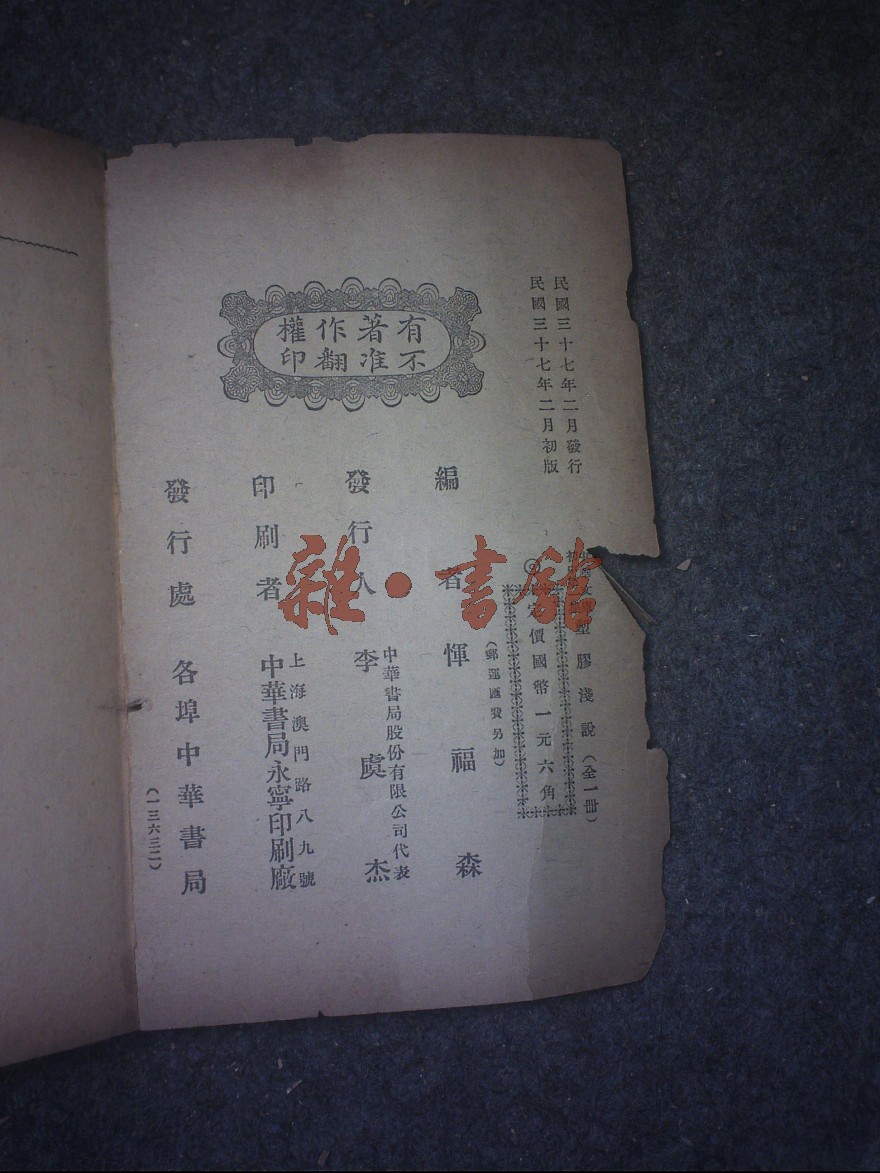 民國三十七年二月發行
民國三十七年二月初版
塑膠淺說（全一冊）
定價國幣一元六角
（郵運匯費另加）
有著作權
不准翻印
編者 惲福森
發行人 李虞杰
中華書局股份有限公司代表
印刷者 中華書局永寧印刷廠
上海澳門路八九號
發行處 各埠中華書局
（一三六三二）
雜·書館